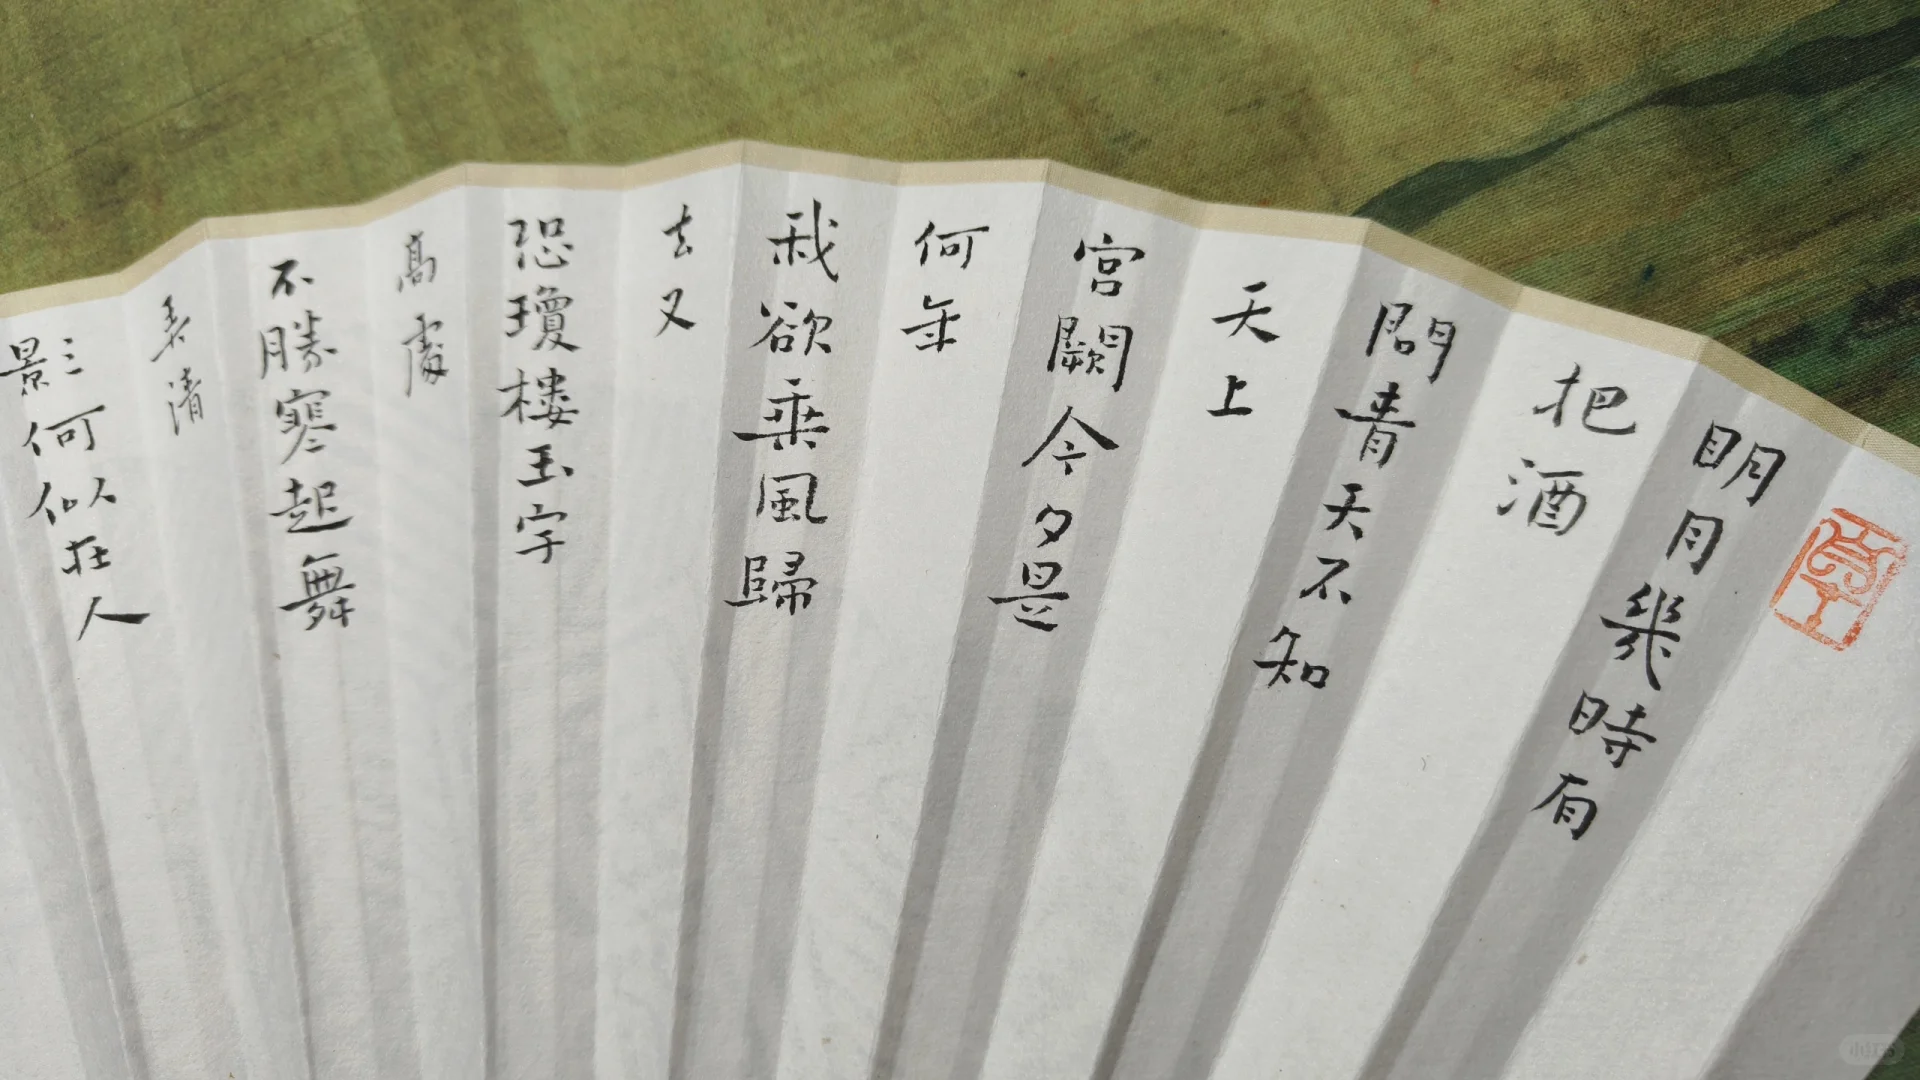 明月幾時有
把酒
問青天不知
天上
宮闕今夕是
何年
我欲乘風歸
去又
恐瓊樓玉宇
高處
不勝寒起舞
弄清
影何似在人